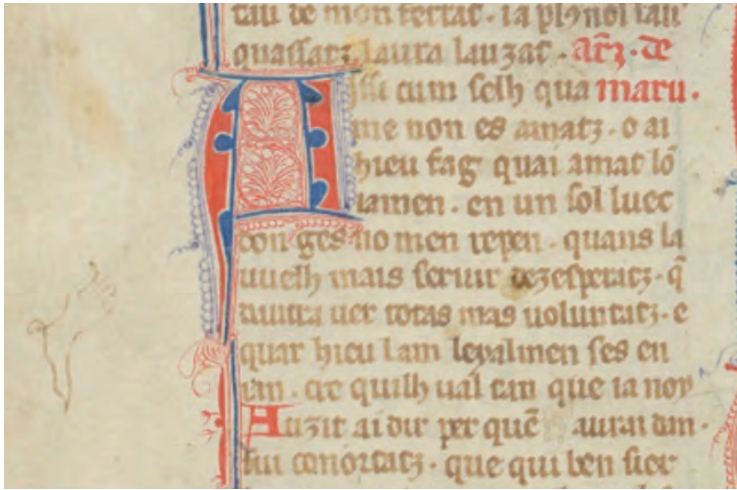 tat de mon fertat · ia pl9 no l an
quassatz laura lauzat · arẽ · de
Aissi cum selh qua maru ·
me non es amatz · o ai
hieu fag quai amat lõ
iamen · en un sol luec
don ges no men repen · quans la
vuelh mais seruir dezesperatz · q̃
dautra uer totas mas uoluntatz · e
quar hieu lam leyalmen ses en
ian · cre quilh ual tan que ia noy
Auzit ai dir per quẽ aurai dan ·
sui conortatz · que qui ben sier